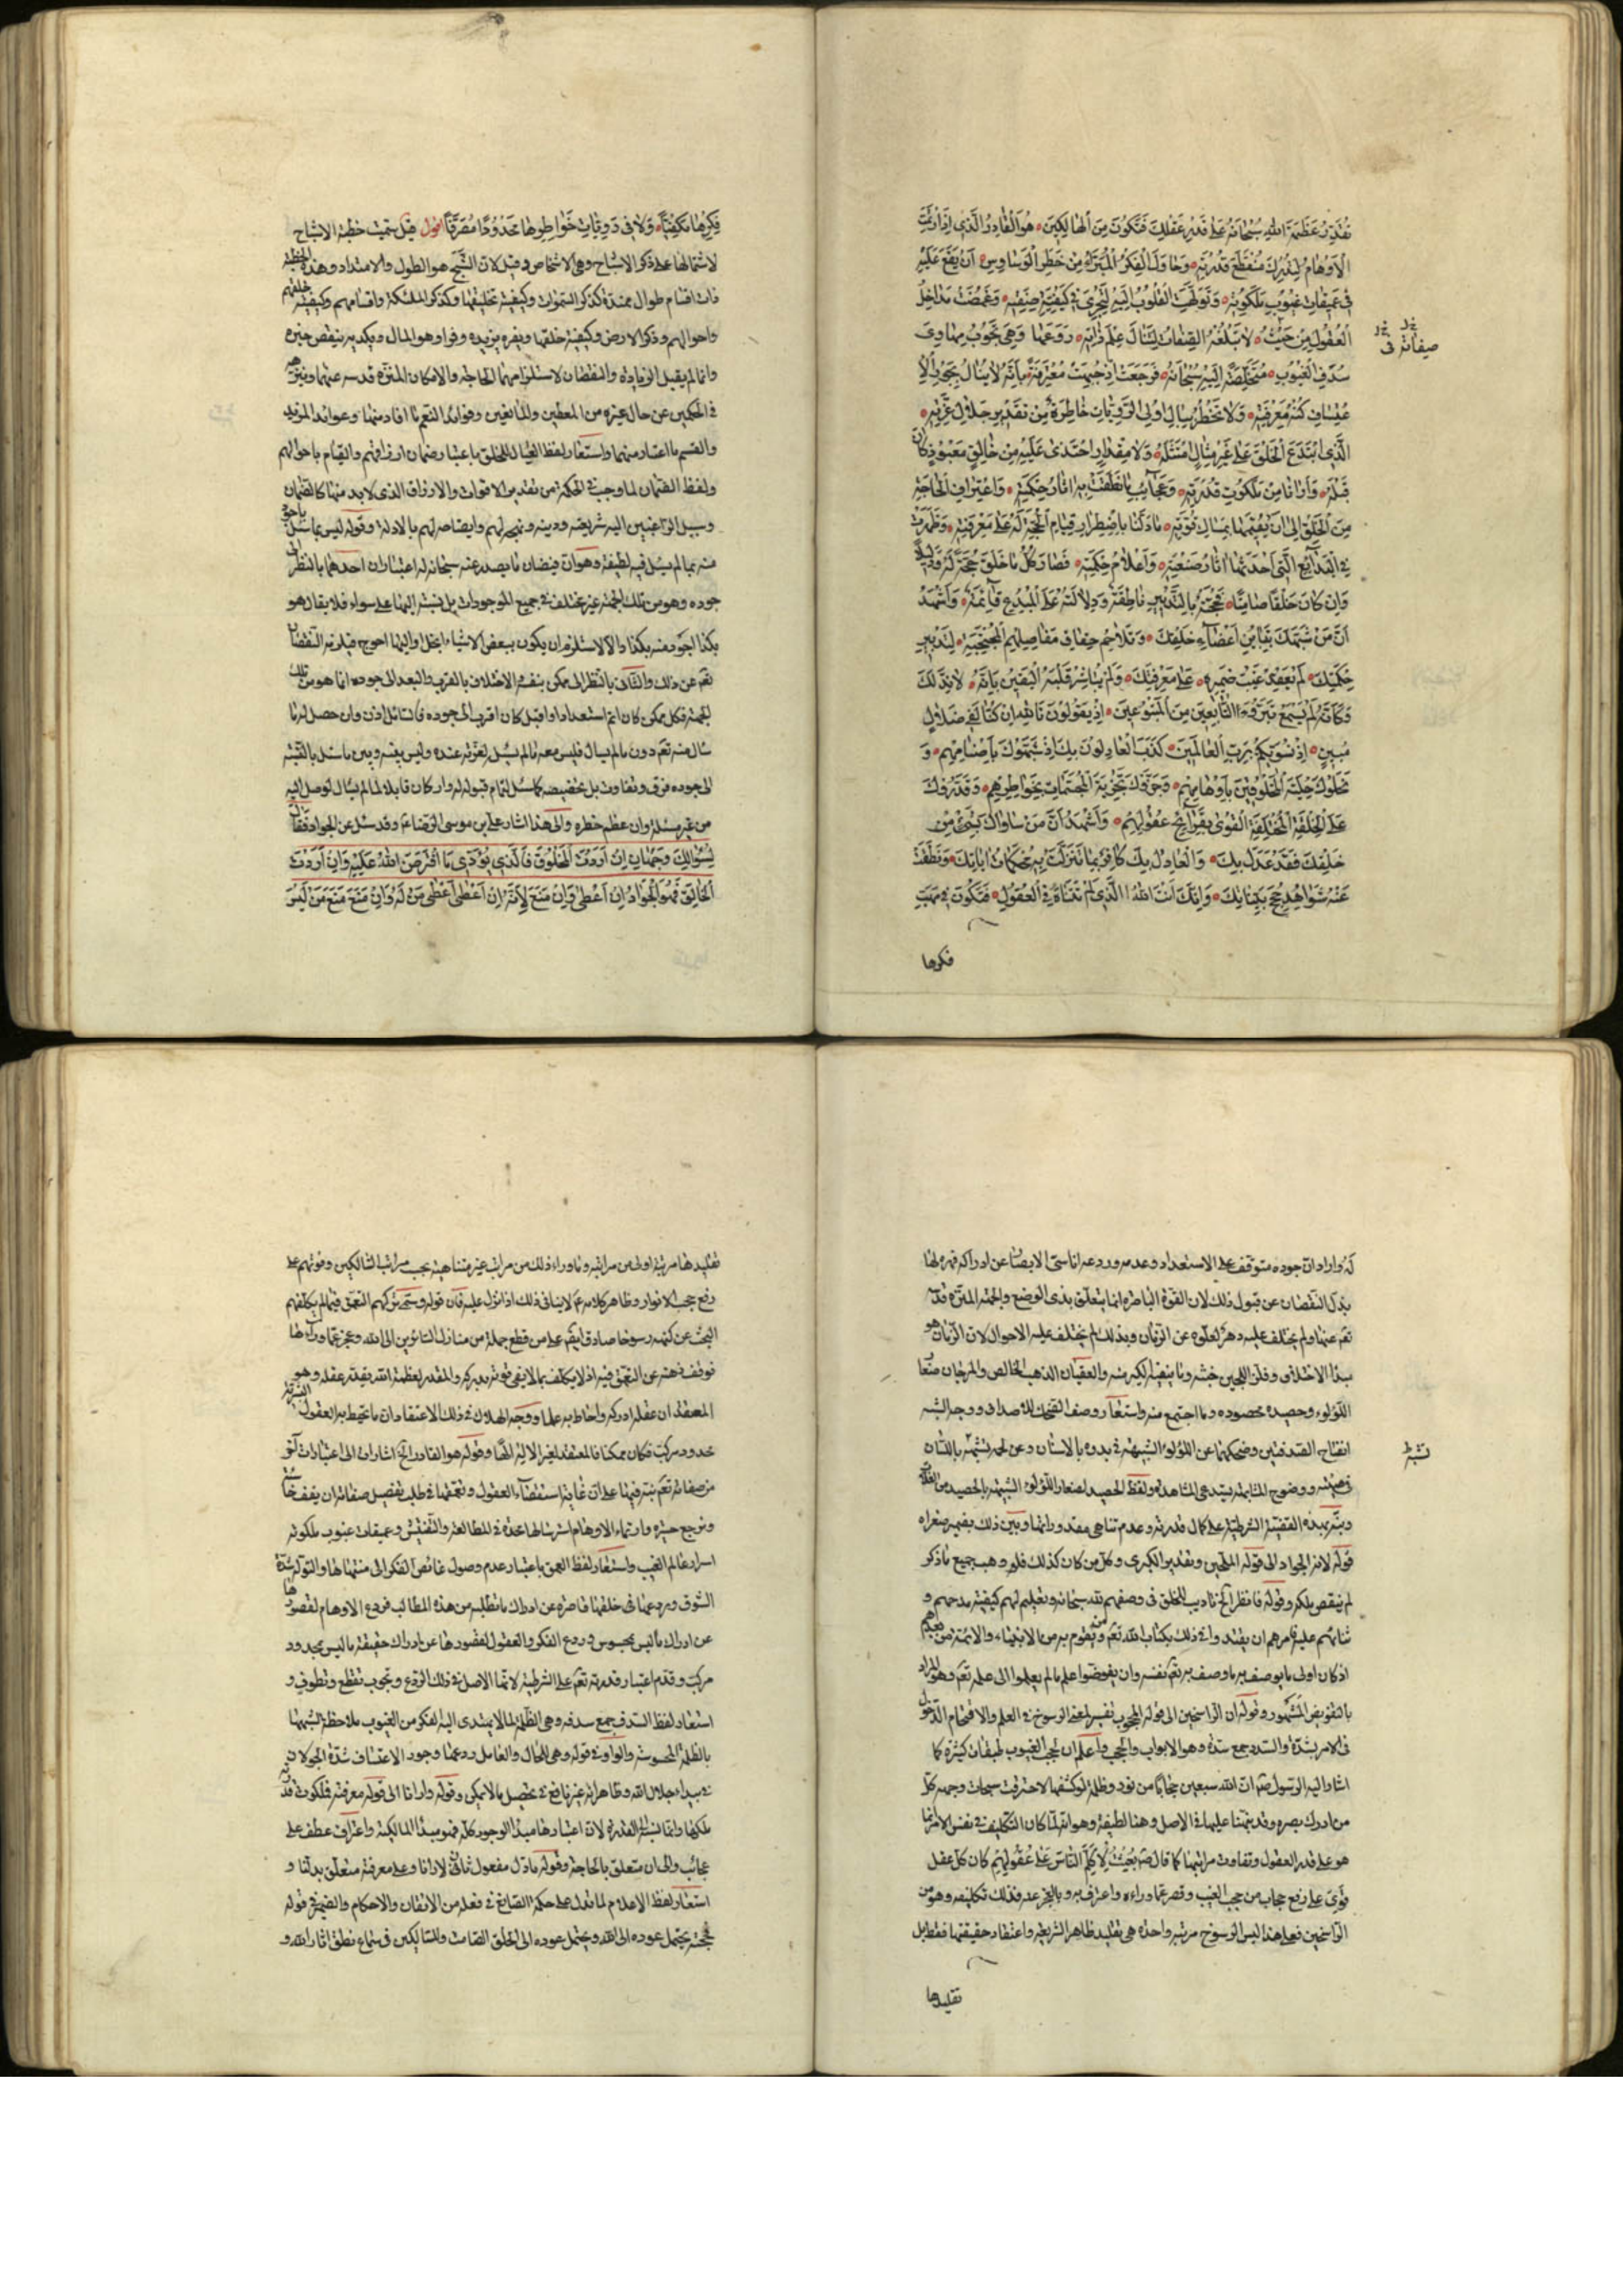 تُقَدِّرْ عَظَمَةَ اللهِ سُبْحَانَهُ عَلَى قَدْرِ عَقْلِكَ فَتَكُونَ مِنَ الْهَالِكِينَ هُوَ الْقَادِرُ الَّذِي إِذَا ارْتَمَتِ
الْأَوْهَامُ لِتُدْرِكَ مُنْقَطَعَ قُدْرَتِهِ وَحَاوَلَ الْفِكْرُ الْمُبَرَّأُ مِنْ خَطَرِ الْوَسَاوِسِ أَنْ يَقَعَ عَلَيْهِ
فِي عَمِيقَاتِ غُيُوبِ مَلَكُوتِهِ وَتَوَلَّهَتِ الْقُلُوبُ إِلَيْهِ لِتَجْرِيَ فِي كَيْفِيَّةِ صِفَتِهِ وَغَمَضَتْ مَدَاخِلُ
الْعُقُولِ مِنْ حَيْثُ لَا تَبْلُغُهُ الصِّفَاتُ لِتَنَالَ عِلْمَ ذَاتِهِ رَدَعَهَا وَهِيَ تَجُوبُ مَهَاوِيَ
صفاته فى
سُدَفِ الْغُيُوبِ مُتَخَلِّصَةً إِلَيْهِ سُبْحَانَهُ فَرَجَعَتْ إِذْ جُبِهَتْ مُعْتَرِفَةً بِأَنَّهُ لَا يُنَالُ بِجَوْرِ الْاِ
عْتِسَافِ كُنْهُ مَعْرِفَتِهِ وَلَا تَخْطُرُ بِبَالِ أُولِي الرَّوِيَّاتِ خَاطِرَةٌ مِنْ تَقْدِيرِ جَلَالِ عِزَّتِهِ
الَّذِي ابْتَدَعَ الْخَلْقَ عَلَى غَيْرِ مِثَالٍ امْتَثَلَهُ وَلَا مِقْدَارٍ احْتَذَى عَلَيْهِ مِنْ خَالِقٍ مَعْبُودٍ كَانَ
قَبْلَهُ وَأَرَانَا مِنْ مَلَكُوتِ قُدْرَتِهِ وَعَجَائِبِ مَا نَطَقَتْ بِهِ آثَارُ حِكْمَتِهِ وَاعْتِرَافِ الْحَاجَةِ
مِنَ الْخَلْقِ إِلَى أَنْ يُقِيمَهَا بِمِسَاكِ قُوَّتِهِ مَا دَلَّنَا بِاضْطِرَارِ قِيَامِ الْحُجَّةِ لَهُ عَلَى مَعْرِفَتِهِ وَظَهَرَتْ
فِي الْبَدَائِعِ الَّتِي أَحْدَثَهَا آثَارُ صَنْعَتِهِ وَأَعْلَامُ حِكْمَتِهِ فَصَارَ كُلُّ مَا خَلَقَ حُجَّةً لَهُ وَدَلِيلًا
وَإِنْ كَانَ خَلْقًا صَامِتًا فَحُجَّتُهُ بِالتَّدْبِيرِ نَاطِقَةٌ وَدِلَالَتُهُ عَلَى الْمُبْدِعِ قَائِمَةٌ وَأَشْهَدُ
أَنَّ مَنْ شَبَّهَكَ بِتَبَايُنِ أَعْضَاءِ خَلْقِكَ وَتَلَاحُمِ حِقَاقِ مَفَاصِلِهِمُ الْمُحْتَجِبَةِ لِتَدْبِيرِ
حِكْمَتِكَ لَمْ يَعْقِدْ غَيْبَ ضَمِيرِهِ عَلَى مَعْرِفَتِكَ وَلَمْ يُبَاشِرْ قَلْبَهُ الْيَقِينُ بِأَنَّهُ لَا نِدَّ لَكَ
وَكَأَنَّهُ لَمْ يَسْمَعْ تَبَرُّؤَ التَّابِعِينَ مِنَ الْمَتْبُوعِينَ إِذْ يَقُولُونَ تَاللهِ إِنْ كُنَّا لَفِي ضَلَالٍ
مُبِينٍ إِذْ نُسَوِّيكُمْ بِرَبِّ الْعَالَمِينَ كَذَبَ الْعَادِلُونَ بِكَ إِذْ شَبَّهُوكَ بِأَصْنَامِهِمْ وَ
نَحَلُوكَ حِلْيَةَ الْمَخْلُوقِينَ بِأَوْهَامِهِمْ وَجَزَّؤُوكَ تَجْزِئَةَ الْمُجَسَّمَاتِ بِخَوَاطِرِهِمْ وَقَدَّرُوكَ
عَلَى الْخِلْقَةِ الْمُخْتَلِفَةِ الْقُوَى بِقَرَائِحِ عُقُولِهِمْ وَأَشْهَدُ أَنَّ مَنْ سَاوَاكَ بِشَيْءٍ مِنْ
خَلْقِكَ فَقَدْ عَدَلَ بِكَ وَالْعَادِلُ بِكَ كَافِرٌ بِمَا تَنَزَّلَتْ بِهِ مُحْكَمَاتُ آيَاتِكَ وَنَطَقَتْ
عَنْهُ شَوَاهِدُ حُجَجِ بَيِّنَاتِكَ وَإِنَّكَ أَنْتَ اللهُ الَّذِي لَمْ تَتَنَاهَ فِي الْعُقُولِ فَتَكُونَ فِي مَهَبِّ
فكرها
فِكْرِهَا مُكَيَّفًا وَلَا فِي رَوِيَّاتِ خَوَاطِرِهَا مَحْدُودًا مُصَرَّفًا اقول قيل سميت خطبة الاشباح
لاشتمالها على ذكر الاشباح وهى الاشخاص وقيل لان الشبح هو الطول والامتداد وهذه الخطبة
ذات اقسام طوال ممتدة كذكر السموات وكيفية تخليقها وكذكر الملئكة واقسامهم وكيفية خلقهم
واحوالهم وذكر الارض وكيفية خلقها ويفره يزيده وفرا وهو المال ويكديه ينقص خيره
وانما لم يقبل الزيادة والنقصان لاستلزامهما الحاجة والامكان المنزه قدسه عنهما
فى الحكمين عن حال غيره من المعطين والمانعين وفوائد النعم ما افاد منها وعوائد المزيد
والقسم ما اعتاد منهما واستعار لفظ العيال للخلق باعتبار ضمان ارزاقهم والقيام باحوالهم
ولفظ الضمان لما وجب فى الحكمة من تقدير الاقوات والارزاق الذى لابد منها كالضمان
وسبيل الراغبين اليه شريعته ودينه ونهجه لهم وايضاحه لهم بالادلة وقوله ليس بما سئل باجود
منه بما لم يسئل فيه لطيفة وهو ان فيضان ما يصدر عنه سبحانه له اعتباران احدهما بالنظر الى
جوده وهو من تلك الجهة غير مختلف فى جميع الموجودات بل نسبته اليها على سواء فلا يقال هو
بكذا اجود منه بكذا والا لاستلزم ان يكون ببعض الاشياء ابخل او اليها احوج فيلزمه النقصان
تعم عن ذلك والثانى بالنظر الى ممكن بنفسه الاختلاف بالقرب والبعد الى جوده انما هو من تلك
الجهة فكل ممكن كان اتم استعدادا واقبل كان اقرب الى جوده فالسائل اذن وان حصل له ما
سال منه تعم دون ما لم يسال فليس منعه ما لم يسئل لعزته عنده وليس بينه وبين ما سئل بالنسبة
الى جوده فرق وتفاوت بل تخصيصه بما سئل لتمام قبوله له وان كان قابلا لما لم يسال لوصل اليه
من غير مسئلة وان عظم خطره والى هذا اشار على بن موسى الرضا ع وقد سئل عن الجواد فقال
لِسُؤَالِكَ وَجْهَانِ إِنْ أَرَدْتَ الْمَخْلُوقَ فَالَّذِي يُؤَدِّي مَا افْتَرَضَ اللهُ عَلَيْهِ وَإِنْ أَرَدْتَ
الْخَالِقَ فَهُوَ الْجَوَادُ إِنْ أَعْطَى وَإِنْ مَنَعَ لِأَنَّهُ إِنْ أَعْطَى أَعْطَى مَنْ لَهُ وَإِنْ مَنَعَ مَنَعَ مَنْ لَيْسَ
لَهُ واراد ان جوده متوقف على الاستعداد وعدمه وردعه اناسى الابصار عن ادراكه قهره لها
بذل النقصان عن قبول ذلك لان القوة الباصرة انما يتعلق بذى الوضع والجهة المنزه قدسه
تعم عنها ولم يختلف عليه دهر لعلوه عن الزمان وبذلك لم يختلف عليه الاحوال لان الزمان هو
مبدأ الاختلاف وفلز اللجين خبثه وما ينفيه الكير منه والعقيان الذهب الخالص والمرجان صغار
اللؤلوء وحصيده محصوده وما اجتمع منه واستعار وصف الضحك للاصداف ووجه الشبه
انفتاح الصدفتين وضحكهما عن اللؤلوء الشبيهة فى بدوه بالاسنان وعن لحمة تشبه باللسان
فى هيئته ووضوح المشابهة يستدعى المشاهدة ولفظ الحصيد لصغار اللؤلوء الشبيهة بالحصيد من الغلة
ونبه بهذه القضية الشرطية على كمال قدرته وعدم تناهى مقدوراتها وبين ذلك بضمير صغراه
قوله لانه الجواد الى قوله الملحين وتقدير الكبرى وكل من كان كذلك فلو وهب جميع ما ذكر
لم ينقص ملكه وقوله فانظر الخ تاديب للخلق فى وصفهم لله سبحانه وتعليم لهم كيفية مدحهم و
ثنائهم عليه فامرهم ان يقتدوا فى ذلك بكتاب الله تعم ومن يقوم به من الانبياء والائمة من بعدهم
اذ كان اولى ما يوصف به ما وصف به تعم نفسه وان يفوضوا علم ما لم يعلموا الى علمه تعم وهو المراد
بالتفويض المشهور وقوله ان الراسخين الى قوله المحجوب تفسير لمعنى الرسوخ فى العلم والاقتحام الدخول
فى الامر بشدة والسدد جمع سدة وهو الابواب والحجب واعلم ان لحجب الغيوب طبقات كثيرة كما
اشار اليه الرسول ص ان لله سبعين حجابا من نور وظلمة لو كشفها لاحترقت سبحات وجهه كل
من ادرك بصره وقد نبهنا عليها فى الاصل وهنا لطيفة وهو انه لما كان التكليف فى نفس الامر انما
هو على قدر العقول وتفاوت مراتبها كما قال ص بعثت لاكلم الناس على عقولهم كان كل عقل
قوى على رفع حجاب من حجب الغيب وقصر عما وراءه واعترف به وبالعجز عنه فذلك تكليفه وهو من
الراسخين فعلى هذا ليس الرسوخ مرتبة واحدة هى تقليد ظاهر الشريعة واعتقاد حقيقتها فقط بل
تقليدها
تقليدها مرتبة اولى من مراتبه وما وراء ذلك من مراتب غير متناهية بحسب مراتب السالكين وقوتهم على
رفع حجب الانوار وظاهر كلامه ع لا ينافى ذلك اذا نزل عليه فان قوله وسمى تركهم التعمق فيما لم يكلفهم
البحث عن كنهه رسوخا صادق ايضم على من قطع جملة من منازل السائرين الى الله وعجز عما وراءها
فوقف ذهنه عن التعمق فيه اذ لا يكلف بما لا يفى قوته بدركه والمقدر لعظمة الله بقدر عقله وهو
المعتقد ان عقله ادركه واحاط به علما ووجه الهلاك فى ذلك الاعتقاد ان ما تحيط به العقول البشرية
محدود مركب فكان ممكنا فالمعتقد لغير الاله الها وقوله هو القادر الخ اشارات الى اعتبارات اخر
من صفاته تعم ينبه فيها على ان غاية استقصاء العقول وتعمقها فى طلب تفصيل صفاته ان يقف خاسئة
وترجع حسيرة وارتماء الاوهام استرسالها مجدة فى المطالعة والتفتيش وعميقات غيوب ملكوته
اسرار عالم الغيب واستعار لفظ العمق باعتبار عدم وصول غائص الفكر الى منتهاها والتوله شدة
الشوق وردعها فى خلقها قاصرة عن ادراك ما تطلبه من هذه المطالب فردع الاوهام لقصورها
عن ادراك ما ليس بمحسوس وردع الفكر والعقول لقصورها عن ادراك حقيقة ما ليس بمحدود
مركب وقدم اعتبار قدرته تعم على الشرطية لانها الاصل فى ذلك الردع وتجوب تقطع وتطوف و
استعار لفظ السدف جمع سدفة وهى الظلمة لما لا يهتدى اليه الفكر من الغيوب ملاحظة لشبهها
بالظلمة المحسوسة والواو فى قوله وهى للحال والعامل ردعها وجور الاعتساف شدة الجولان
فى بيداء جلال الله وظاهر انه غير نافع فى تحصيل ما لا يمكن وقوله وارانا الى قوله معرفته فملكوت قدرته
ملكها وانما نسبه الى القدرة لان اعتبارها مبدأ الوجود كله فهو مبدأ المالكية واعتراف عطف على
عجائب والى ان متعلق بالحاجة وقوله ما دل مفعول ثان لارانا وعلى معرفته متعلق بدلنا و
استعار لفظ الاعلام لما يدل على حكمة الصانع فى فعله من الاتقان والاحكام والضمير فى قوله
فحجته يحتمل عوده الى الله ويحتمل عوده الى الخلق الصامت وللسالكين فى سماع نطق اثار الله و